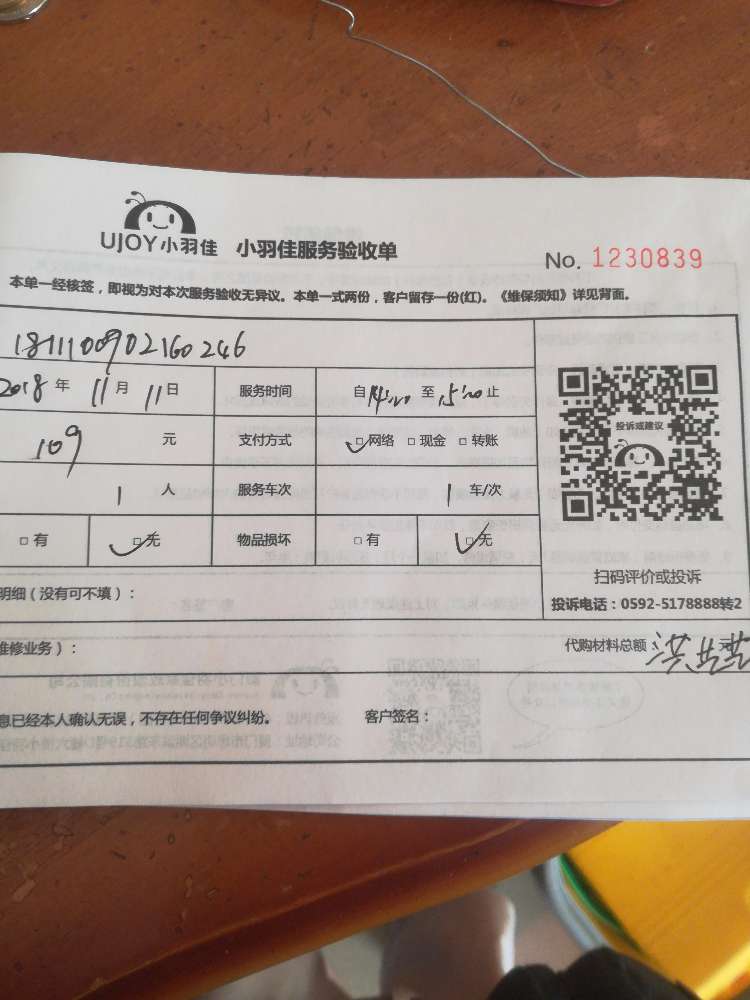 UJOY小羽佳 小羽佳服务验收单
No. 1230839
本单一经核签，即视为对本次服务验收无异议。本单一式两份，客户留存一份(红)。《维保须知》详见背面。
1811100902160246
2018年 11月 11日 服务时间 自14:00至15:00止
109 元 支付方式 网络 现金 转账
1 人 服务车次 1 车/次
有 无 物品损坏 有 无
投诉或建议
扫码评价或投诉
投诉电话：0592-5178888转2
明细（没有可不填）：
维修业务）： 代购材料总额： 元
息已经本人确认无误，不存在任何争议纠纷。 客户签名：